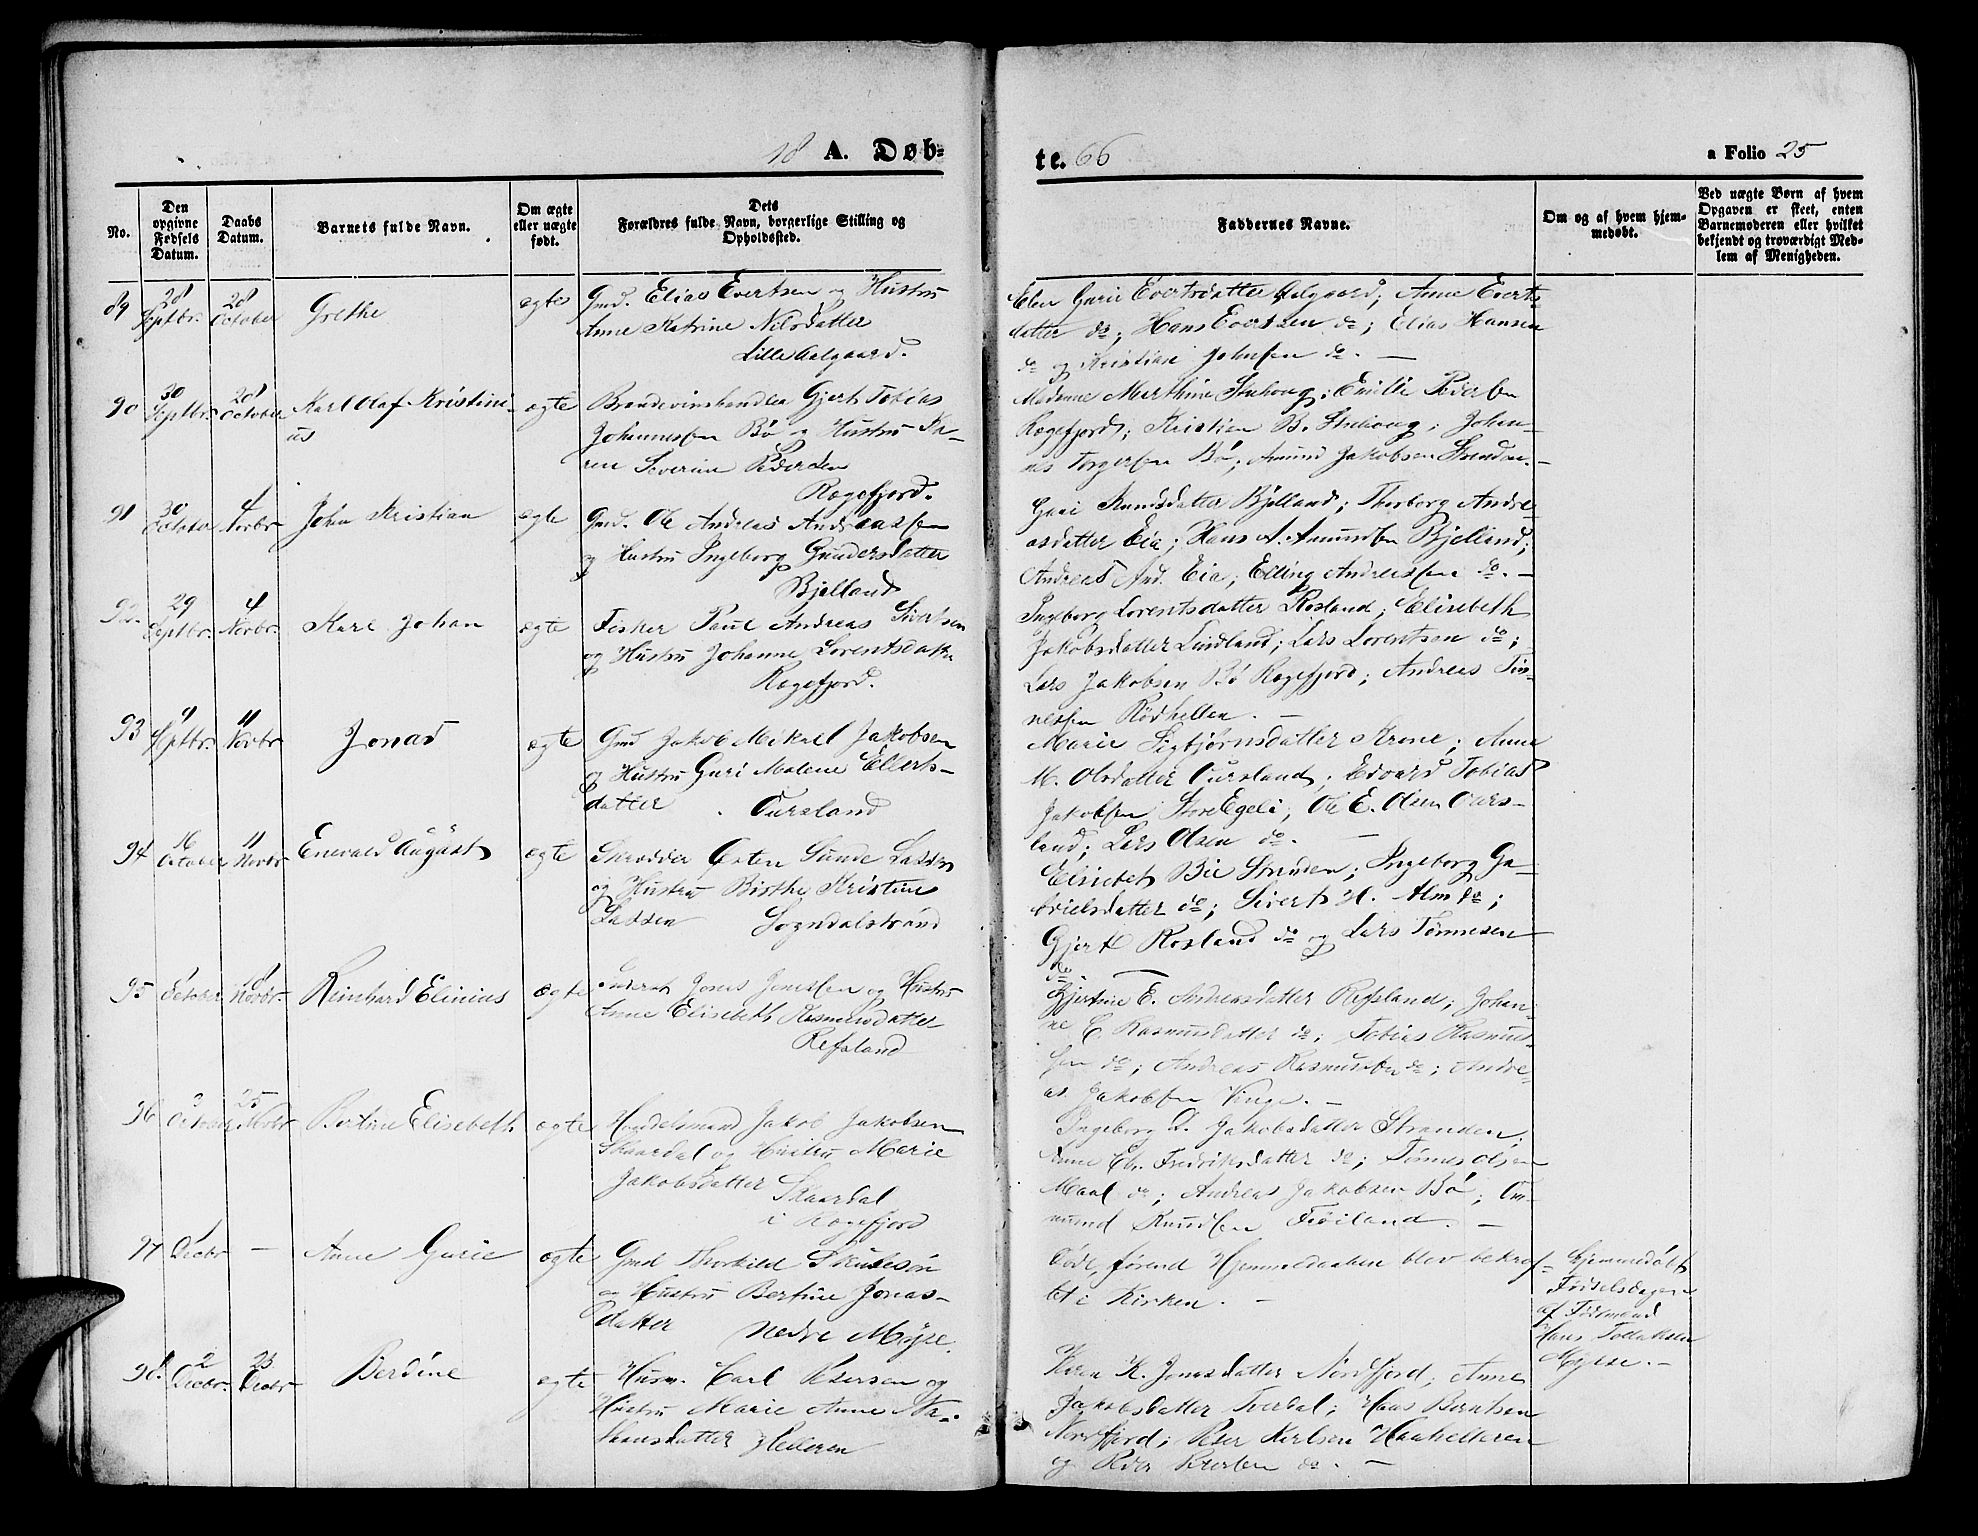 18 A. Døb-
te. 66
a Folio 25
No.
Den opgivne Fødsels Datum.
Daabs Datum.
Barnets fulde Navn.
Om ægte eller uægte født.
Dets
Forældres fulde Navn, borgerlige Stilling og
Opholdssted.
Faddernes Navne.
Om og af hvem hjem-
medøbt.
Ved uægte Børn af hvem
Opgaven er skeet, enten
Barnemoderen eller hvilket
bekjendt og troværdigt Med-
lem af Menigheden.
89 28 Septbr. 28 October Grethe ægte Gmd. Elias Evertsen og Hustru
Anne Katrine Nilsdatter
Lille Aalgaard.
Elen Gurie Evertsdatter Aalgaard; Anne Everts-
datter do; Hans Evertsen do; Elias Hansen
do og Kristian Johnsen do. —
90 30 Septbr. 28 October Karl Olaf Kristini-
us
ægte Brændevinshandler Gjert Tobias
Johannessen Bø og Hustru Ka-
ren Severine Pedersen
Rægefjord.
Madame Marthine Stuhoug; Emilie Pedersen
Rægefjord; Kristian B. Stuhoug; Johan-
nes Torgersen Bø; Amund Jakobsen Stranden. —
91 30 October 4 Novbr John Kristian ægte Gmd. Ole Andreas Andreassen
og Hustru Ingeborg Gundersdatter
Bjelland
Guri Knudsdatter Bjelland; Thorborg Andre-
asdatter Eia; Hans A. Amundsen Bjelland;
Andreas And. Eia; Elling Andreassen do. —
92. 29 Septbr. 4 Novbr. Karl Johan ægte Fisker Paul Andreas Sivertsen
og Hustru Johanne Lorentsdatter
Rægefjord.
Ingeborg Lorentsdatter Rosland; Elisebeth
Jakobsdatter Lindland; Lars Lorentsen do;
Lars Jakobsen Bø Rægefjord; Andreas Tøn-
nesen Rødhellen. —
93 9 Septbr. 11 Novbr Jonas ægte Gmd Jakob Mikael Jakobsen
og Hustru Guri Malene Ellerts-
datter. Oursland
Marie Sigbjørnsdatter Arene; Anne
M. Olsdatter Oursland; Edvard Tobias
Jakobsen Store Egeli; Ole E. Olsen Ours-
land; Lars Olsen do. —
94 16 October 11 Novbr Enevald August ægte Skrædder Østen Sunde Lassen
og Hustru Birthe Kristine
Lassen Sogndalstrand
Elsiebet Bie Stranden; Ingeborg Ga-
brielsdatter do; Sivert H. Alm do;
Gjert Rosland do og Lars Tønnesen
do. —
95 October 18 Novbr. Reinhard Elinius ægte Jonas Jonassen og Hustru
Anne Elisebeth Rasmusdatter
Refsland
Gjertine E. Andreasdatter Refsland; Johan-
ne E. Rasmusdatter do; Tobias Rasmus-
sen do; Andreas Rasmussen do; Andre-
as Jakobsen Vinge. —
96 3 October 25 Novbr Bertine Elisebeth ægte Handelsmand Jakob Jakobsen
Skaardal og Hustru Marie
Jakobsdatter Skaardal
i Rægefjord
Ingeborg D. Jakobsdatter Stranden;
Anne Chr. Fredriksdatter do; Tønnes Olsen
Maal do; Andreas Jakobsen Bø; Om-
mund Knudsen Frøiland. —
97 1 Decbr — Anne Gurie ægte Gmd Thorkild Skulesøn
og Hustru Bertine Jonas-
datter Nedre Mysse.
Død, førend Hjemmedaaben blev bekræf-
tet i Kirken. —
Hjemmedøbt
Fødselsdagen
af Formand
Hans Tollaksen
Mysse. —
98. 2 Decbr. 23 Decbr Berdine ægte Husm. Carl Petersen og
Hustru Marie Anne Na-
thansdatter Helleren
Karen K. Jonasdatter Nordfjord; Anne
Jakobsdatter Tverdal; Hans Berntsen
Nordfjord; Peter Karlsen Haahelleren
og Peder Petersen do. —